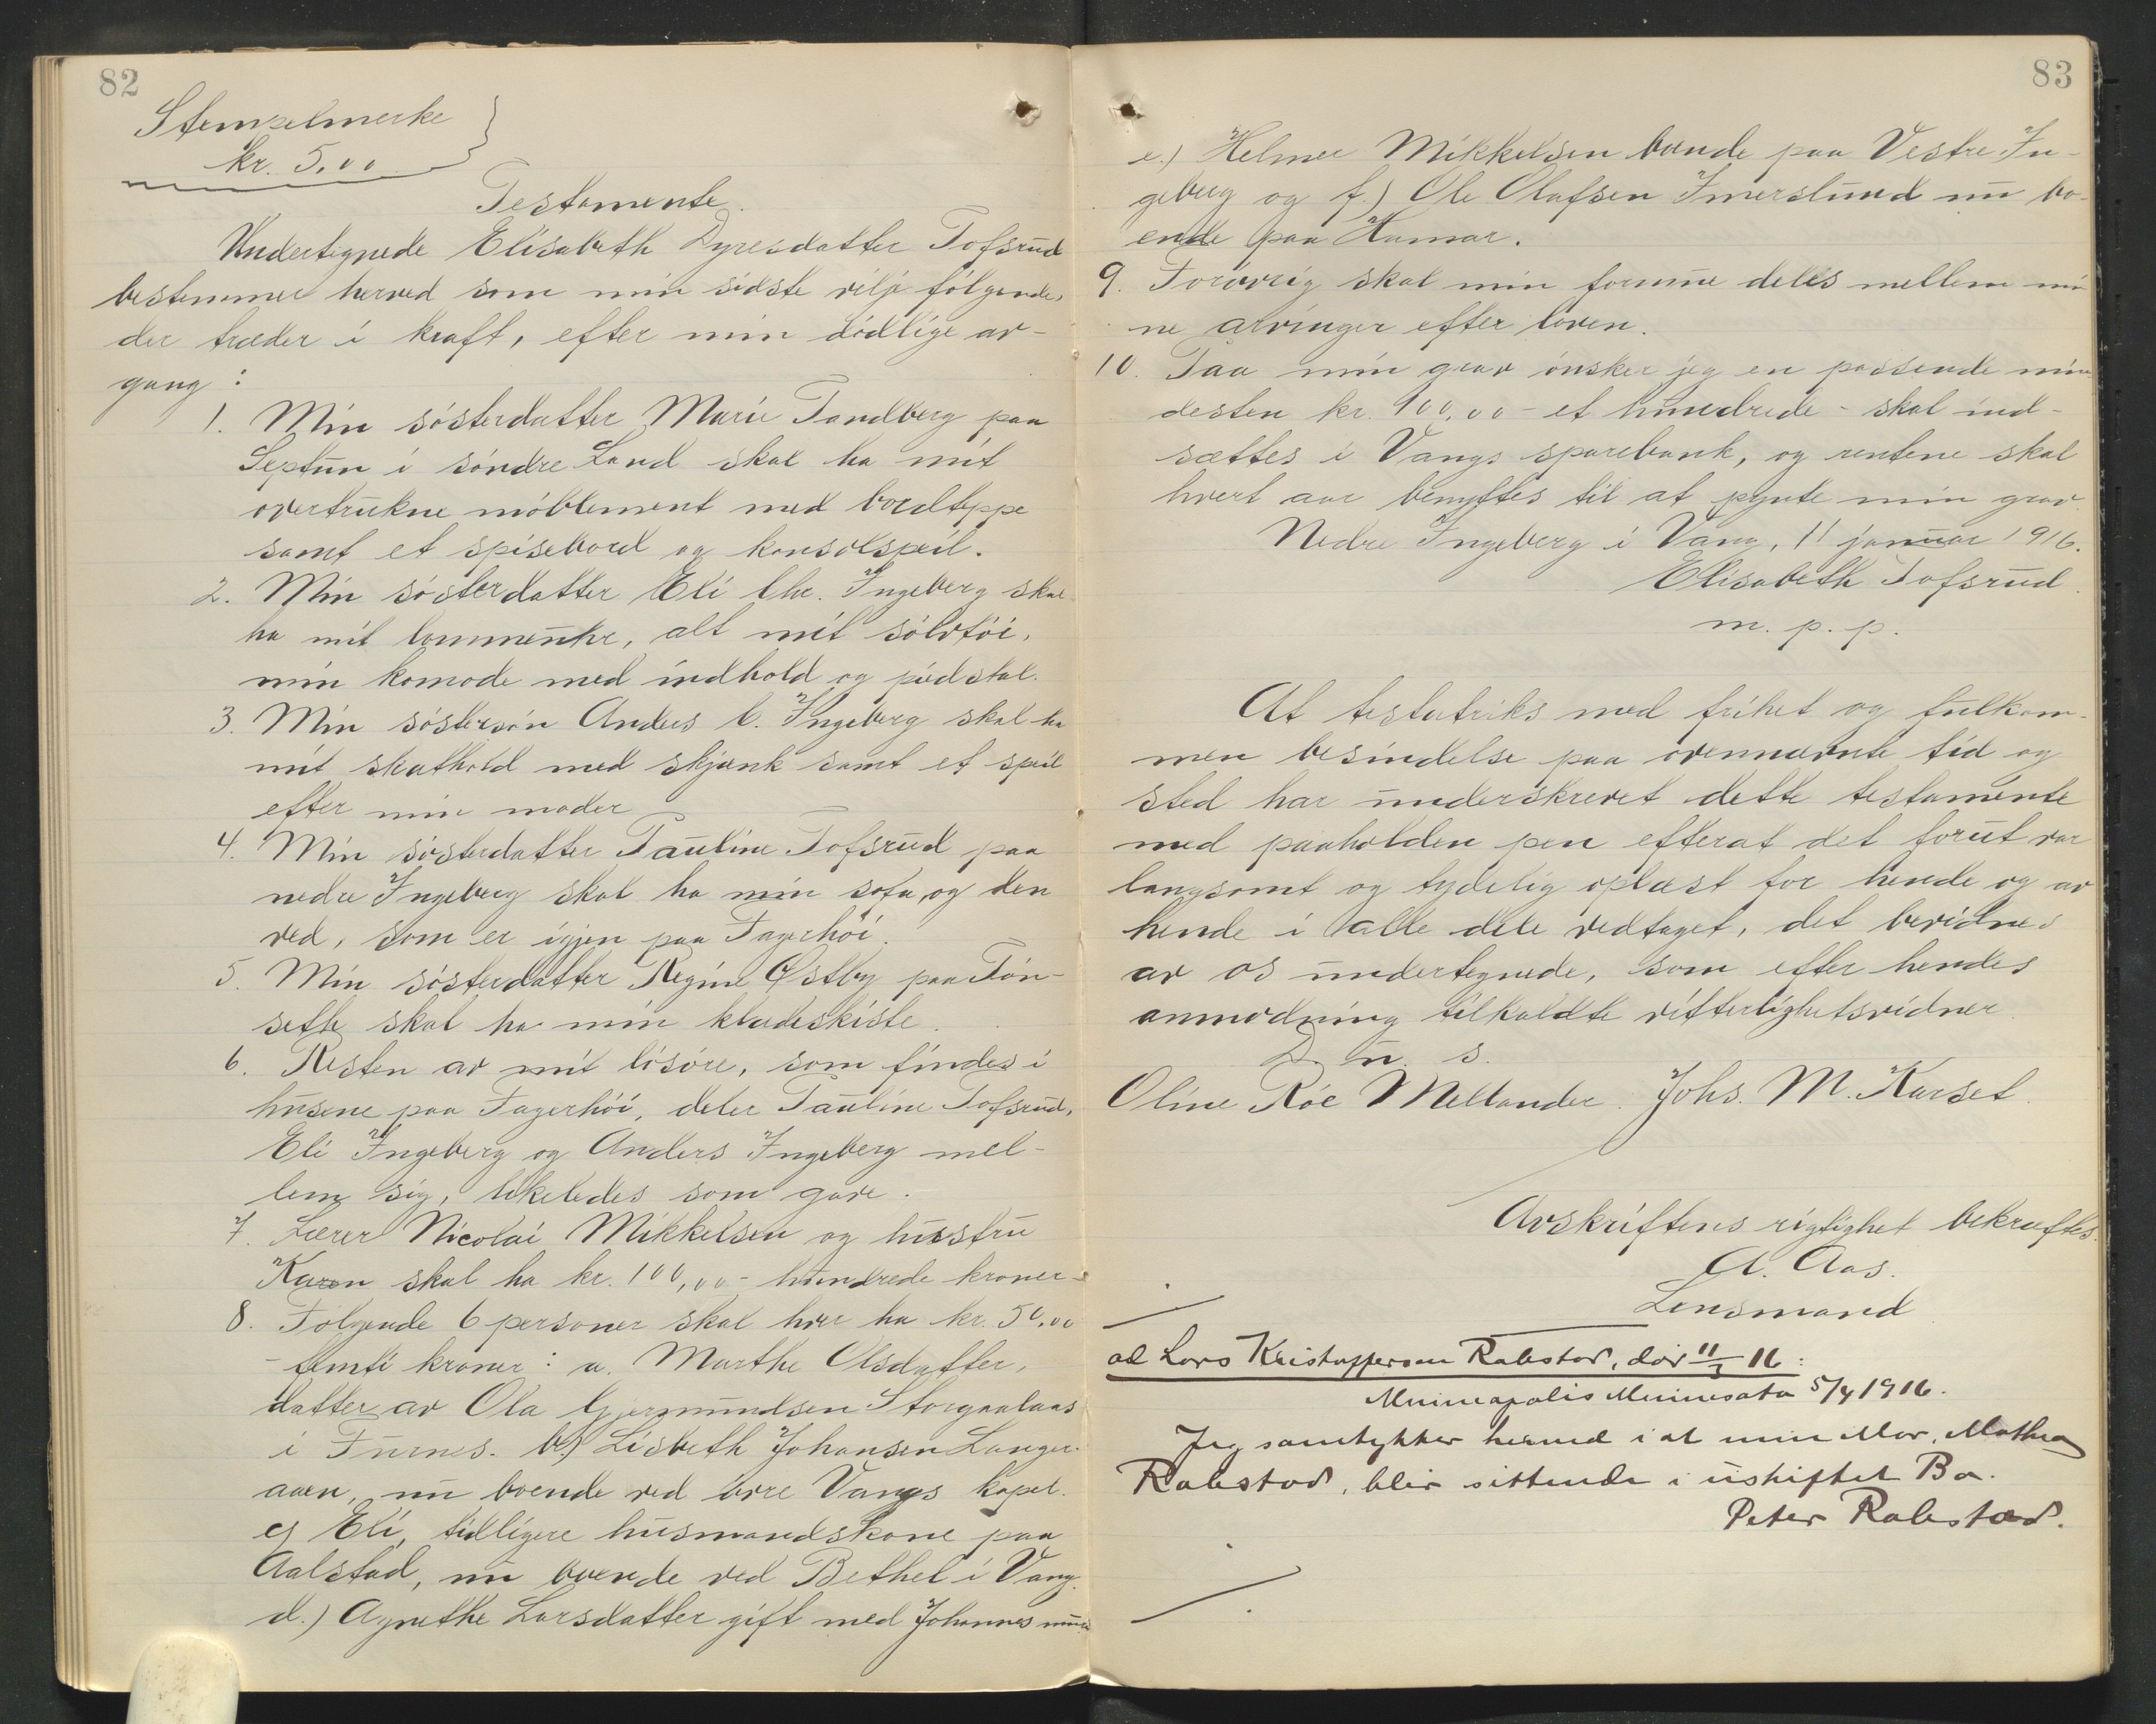 82
Stempelmerke
kr. 5.00
Testamente.
Undertegnede Elisabeth Dyresdatter Tofsrud
bestemmer herved som min sidste vilje følgende,
der træder i kraft, efter min dødlige av-
gang:
1. Min søsterdatter Marie Sandberg paa
i søndre Land skal ha mit
overtrukne møblement med bordteppe
samt et spisebord og konsolspeil.
2. Min søsterdatter Eli Chr. Ingeberg skal
ha mit lommeuhr, alt mit sølvtøi,
min komode med indhold og pidstal.
3. Min søstersøn Anders C. Ingeberg skal ha
mit skathold med skjænk samt et speil
efter min moder
4. Min søsterdatter Pauline Tofsrud paa
nedre Ingeberg skal ha min sofa, og den
ved, som er igjen paa Fagerhöi.
5. Min søsterdatter Regine Østby paa Tøn-
seth skal ha min klædeskiste.
6. Resten av mit løsøre, som findes i
husene paa Fagerhöi, deler Pauline Tofsrud,
Eli Ingeberg og Anders Ingeberg mel-
lem sig, likeledes som gave.
7. Lærer Nicolai Mikkelsen og hustru
Karen skal ha kr. 100,00 - hundrede kroner -
8. Følgende 6 personer skal hver ha kr. 50,00
- femti kroner: a. Marthe Olsdatter,
datter av Ola Gjermundsen Storgaalaas
i Furnes. b) Lisbeth Johansen Langer-
aaen, nu boende ved øvre Vangs kapel.
c) Eli, tidligere husmandskone paa
Aalstad, nu boende ved Bethel i Vang.
d.) Agnethe Larsdatter gift med Johannes
83
e.) Helmer Mikkelsen boende paa Vestre In-
geberg og f.) Ole Olafsen Imerslund nu bo-
ende paa Hamar.
9. Forøvrig skal min formue deles mellem mi
ne arvinger efter loven.
10. Paa min grav ønsker jeg en passende min-
desten kr. 100,00 - et hundrede - skal ind-
sættes i Vangs sparebank, og rentene skal
hvert aar benyttes til at pynte min grav.
Nedre Ingeberg i Vang, 11 januar 1916.
Elisabeth Tofsrud
m. p. p.
At testatriks med frihet og fulkom-
men besindelse paa ovennævnte tid og
sted har underskrevet dette testamente
med paaholden pen efterat det forut var
langsomt og tydelig oplæst for hende og av
hende i alle dele vedtaget, det bevidnes
av os undertegnede, som efter hendes
anmodning tilkaldte vitterlighetsvidner.
D. u. s.
Oline Röe Mellander. Johs. M. Karset.
Avskriftens rigtighet bekræftes.
A. Aas.
Lensmand
ad Lars Kristoffersen Rabstad, død 11/3 16:
Minneapolis Minnesota 5/4 1916.
Jeg samtykker herved i at min Mor, Mathea
Rabstad, blir sittende i uskiftet Bo.
Peter Rabstad.